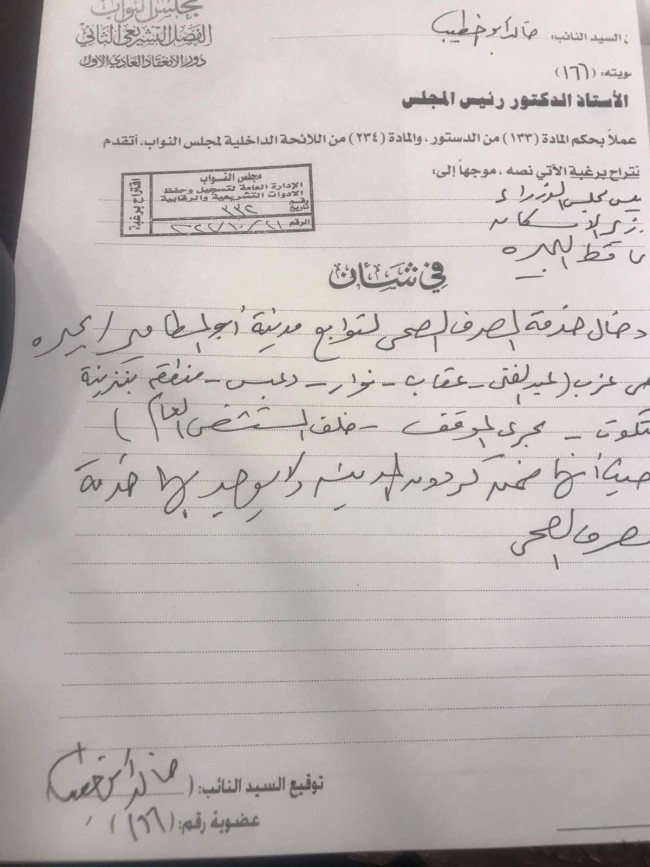 مجلس النواب
الفصل التشريعى الثانى
دور الانعقاد العادى الأول
السيد النائب: خالد ابو خطيب
ويته: (١٦٦)
الأستاذ الدكتور رئيس المجلس
عملاً بحكم المادة (١٣٣) من الدستور، والمادة (٢٣٤) من اللائحة الداخلية لمجلس النواب، أتقدم
نتراح برغبة الآتي نصه، موجهاً إلى:
يس مجلس الوزراء
زير الاسكان
افظ البحيره
اقتراح برغبة
مجلس النواب
الإدارة العامة لتسجيل وحفظ
الأدوات التشريعية والرقابية
رقم ٣٣٢
تاريخ
الرقم ٢٠٢٢/١٠/٢١
في شأن
دخال خدمة الصرف الصحى لتوابع مدينة أبو المطامير / بحيره
عزب (عبد الغنى - عقاب - نوار - دعبس - منطقة بنزينة
- بحرى الموقف - خلف المستشفى العام)
حيث أنها ضمن كردون المدينه ولا يوجد بها خدمة
لصرف الصحى
توقيع السيد النائب: (خالد ابو خطيب
عضوية رقم: (١٦٦)